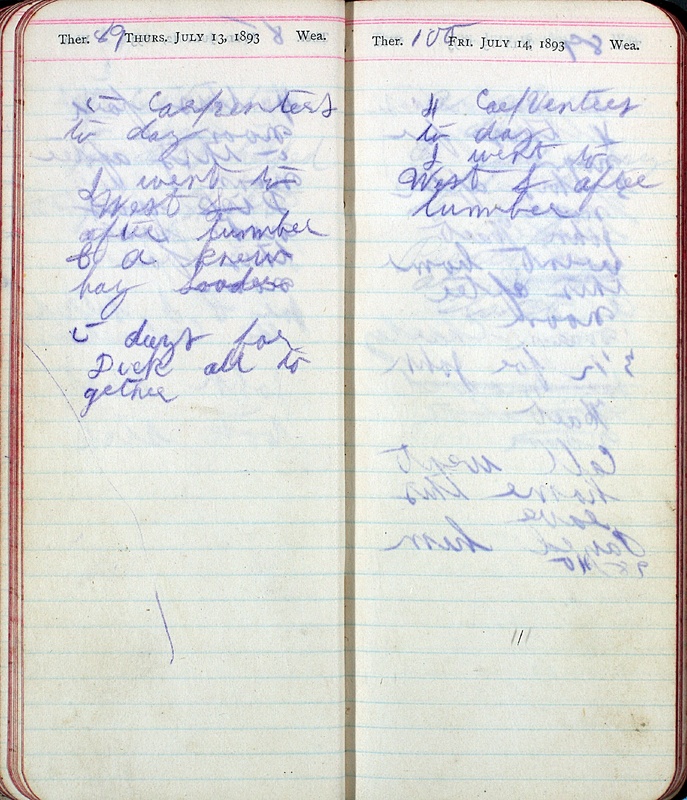 Ther. 89 THURS. JULY 13, 1893 Wea.
5 Carpenters
to day
I went to
West L
after lumber
& a knew
hay loader
5 days for
Dick all to
gether
Ther. 100 FRI. JULY 14, 1893 Wea.
4 Carpenters
to day
I went to
West L after
lumber